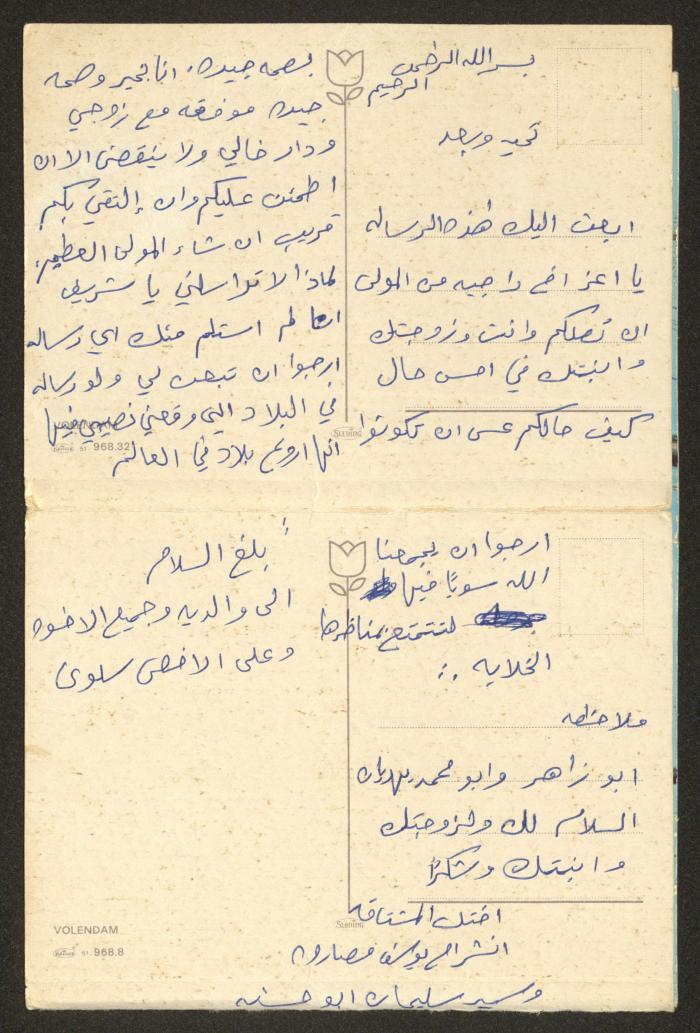 بسم الله الرحمن
الرحيم
تحيه وبعد
ابعث اليك هذه الرساله
يا اعز اخ راجيه من المولى
ان تصلكم وانت وزوجتك
وابنتك في احسن حال
كيف حالكم عسى ان تكونوا
بصحه جيده. انا بخير وصحه
جيده موفقه مع زوجي
ودار خالي ولا ينقصني الا ان
اطمئن عليكم وان إلتقي بكم
قريب ان شاء المولى العظيم.
لماذا لا تراسلني يا شريف
انا لم استلم منك اي رساله
ارجوا ان تبعث لي ولو رساله
في البلاد التي وقعني نصيبي فيها
انها اروع بلاد في العالم
VOLENDAM
51. 968.32
SLEDING
ارجوا ان يجمعنا
الله سويًا فيها
لنتمتع بمناظرها
الخلابه
ملاحظه
ابو زاهر وابو محمد يهديان
السلام لك ولزوجتك
وابنتك وشكرًا
اختك المشتاقه
انشراح يوسف مصاروه
وسمير سليمان ابو حسنه
بلغ السلام
الى والديه وجميع الاخوه
وعلى الاخص سلوى
SLEDING
VOLENDAM
51. 968.8